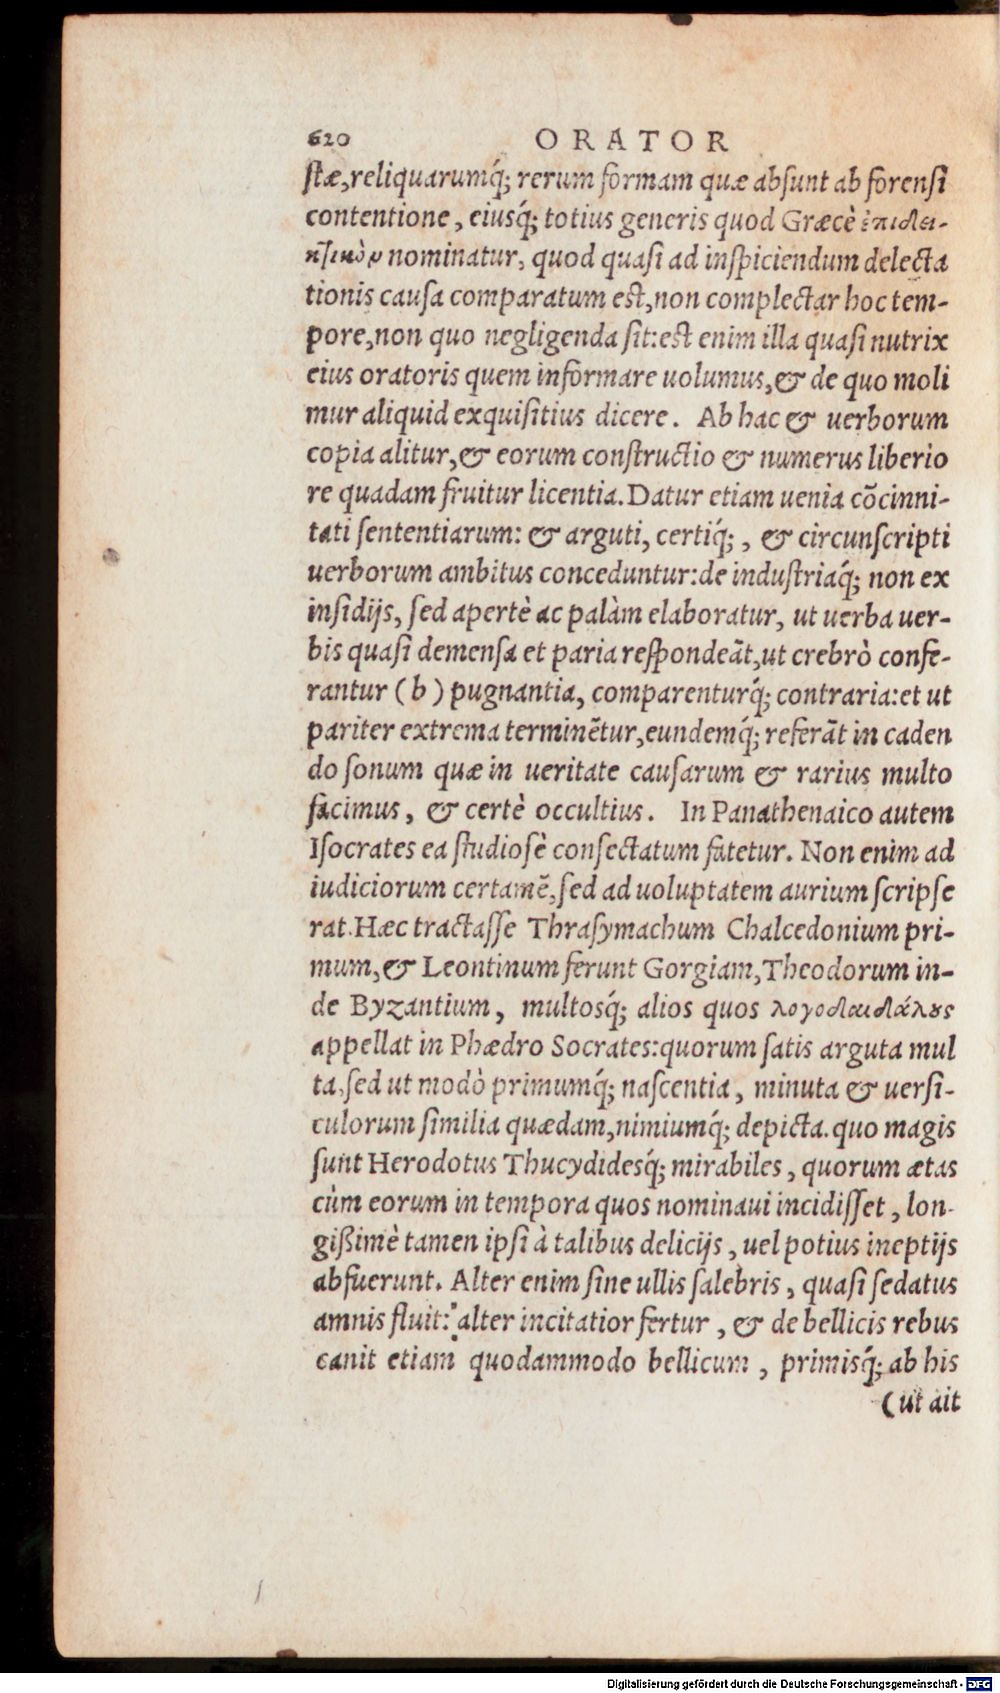 620 ORATOR
stæ, reliquarumq́; rerum formam quæ absunt ab forensi
contentione, eiusq́; totius generis quod Græcè ἐπιδει-
κτικὸν nominatur, quod quasi ad inspiciendum delecta
tionis causa comparatum est, non complectar hoc tem-
pore, non quo negligenda sit: est enim illa quasi nutrix
eius oratoris quem informare uolumus, & de quo moli
mur aliquid exquisitius dicere. Ab hac & uerborum
copia alitur, & eorum constructio & numerus liberio
re quadam fruitur licentia. Datur etiam uenia cõcinni-
tati sententiarum: & arguti, certiq́;, & circunscripti
uerborum ambitus conceduntur: de industriaq́; non ex
insidijs, sed apertè ac palàm elaboratur, ut uerba uer-
bis quasi demensa et paria respondeãt, ut crebrò confe-
rantur (b) pugnantia, comparenturq́; contraria: et ut
pariter extrema terminẽtur, eundemq́; referãt in caden
do sonum quæ in ueritate causarum & rarius multo
facimus, & certè occultius. In Panathenaico autem
Isocrates ea studiosè consectatum fatetur. Non enim ad
iudiciorum certamẽ, sed ad uoluptatem aurium scripse
rat. Hæc tractasse Thrasymachum Chalcedonium pri-
mum, & Leontinum ferunt Gorgiam, Theodorum in-
de Byzantium, multosq́; alios quos λογοδαιδάλους
appellat in Phædro Socrates: quorum satis arguta mul
ta, sed ut modò primumq́; nascentia, minuta & uersi-
culorum similia quædam, nimiumq́; depicta. quo magis
sunt Herodotus Thucydidesq́; mirabiles, quorum ætas
cùm eorum in tempora quos nominaui incidisset, lon-
gißimè tamen ipsi à talibus delicijs, uel potius ineptijs
abfuerunt. Alter enim sine ullis salebris, quasi sedatus
amnis fluit: alter incitatior fertur, & de bellicis rebus
canit etiam quodammodo bellicum, primisq́; ab his
(ut ait
Digitalisierung gefördert durch die Deutsche Forschungsgemeinschaft - DFG